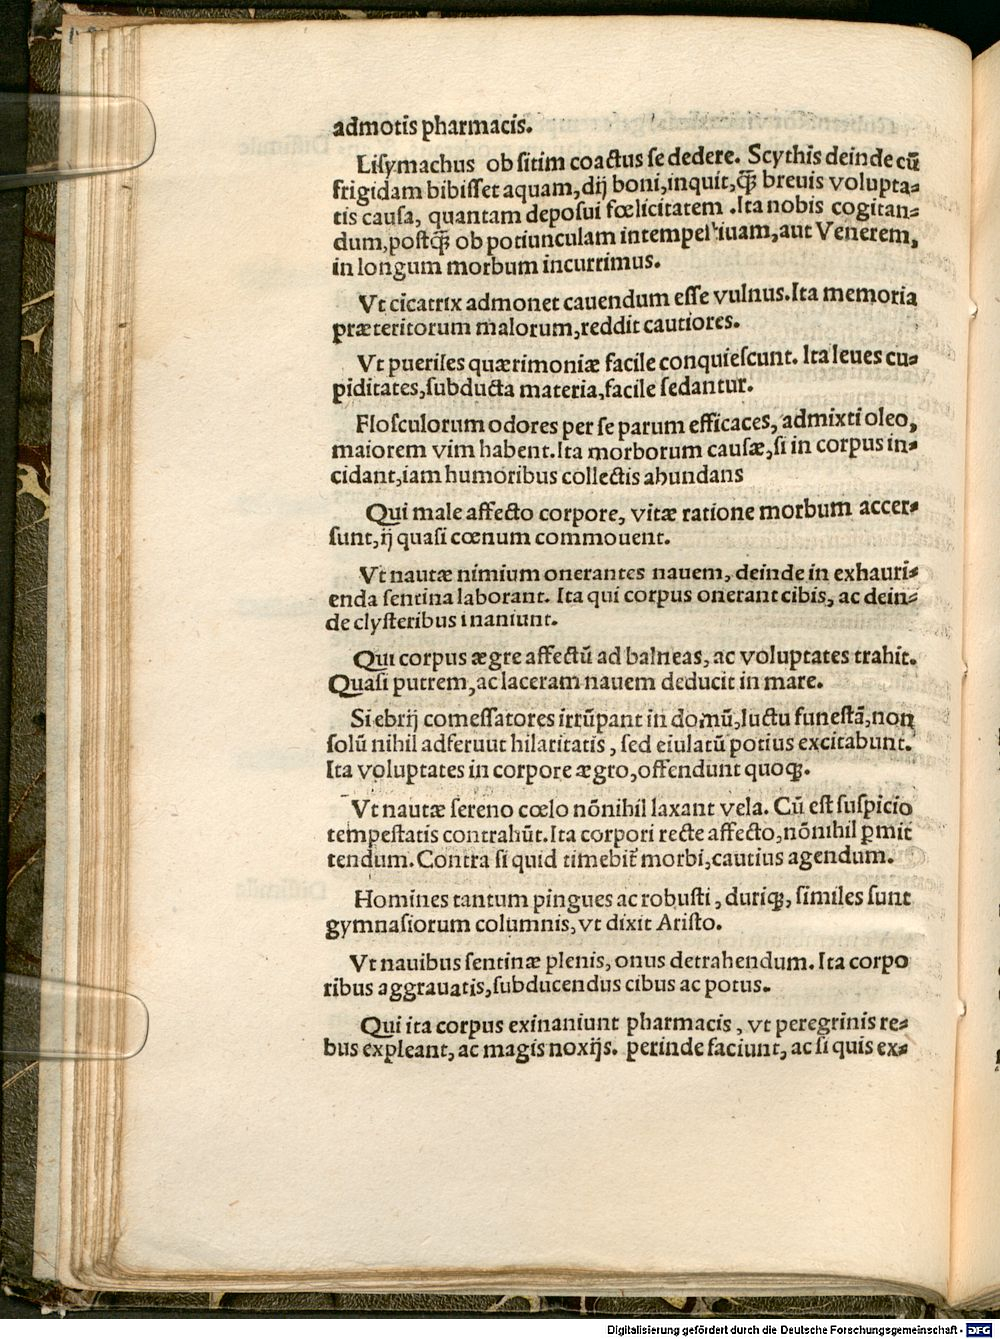 admotis pharmacis.
Liſymachus ob ſitim coactus ſe dedere. Scythis deinde cū
frigidam bibiſſet aquam, dij boni, inquit, ꝙ̄ breuis volupta⸗
tis cauſa, quantam depoſui fœlicitatem .Ita nobis cogitan⸗
dum, poſtꝙ̄ ob potiunculam intempeſtiuam, aut Venerem,
in longum morbum incurrimus.
Vt cicatrix admonet cauendum eſſe vulnus. Ita memoria
præteritorum malorum, reddit cautiores.
Vt pueriles quærimoniæ facile conquieſcunt. Ita leues cu⸗
piditates, ſubducta materia, facile ſedantur.
Floſculorum odores per ſe parum efficaces, admixti oleo,
maiorem vim habent. Ita morborum cauſæ, ſi in corpus in⸗
cidant, iam humoribus collectis abundans
Qui male affecto corpore, vitæ ratione morbum accer⸗
ſunt, ij quaſi cœnum commouent.
Vt nautæ nimium onerantes nauem, deinde in exhauri⸗
enda ſentina laborant. Ita qui corpus onerant cibis, ac dein⸗
de clyſteribus inaniunt.
Qui corpus ægre affectū ad balneas, ac voluptates trahit.
Quaſi putrem, ac laceram nauem deducit in mare.
Si ebrij comeſſatores irrūpant in domū, luctu funeſtā, non
ſolū nihil adferuut hilaritatis, ſed eiulatū potius excitabunt.
Ita voluptates in corpore ægro, offendunt quoqꝫ.
Vt nautæ ſereno cœlo nōnihil laxant vela. Cū eſt ſuſpicio
tempeſtatis contrahūt. Ita corpori recte affecto, nōnihil ꝑmit
tendum. Contra ſi quid timebit̄ morbi, cautius agendum.
Homines tantum pingues ac robuſti, duriqꝫ, ſimiles ſunt
gymnaſiorum columnis, vt dixit Ariſto.
Vt nauibus ſentinæ plenis, onus detrahendum. Ita corpo
ribus aggrauatis, ſubducendus cibus ac potus.
Qui ita corpus exinaniunt pharmacis, vt peregrinis re⸗
bus expleant, ac magis noxijs. perinde faciunt, ac ſi quis ex⸗
Digitalisierung gefördert durch die Deutsche Forschungsgemeinschaft - DFG